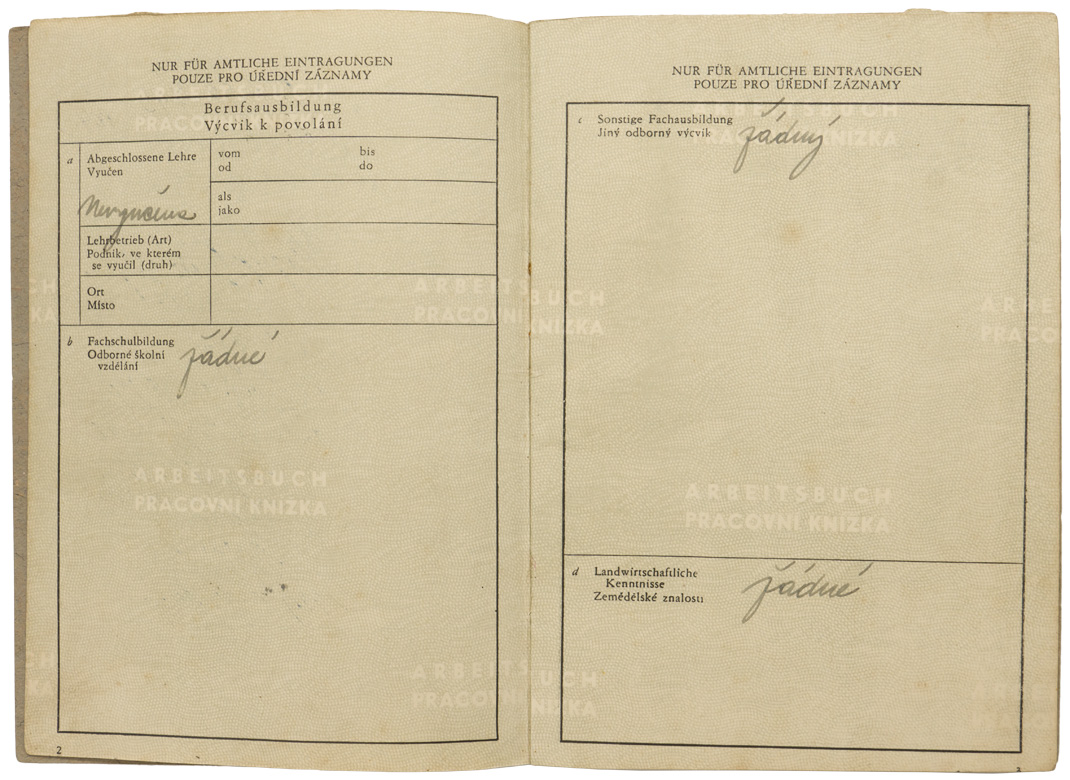 NUR FÜR AMTLICHE EINTRAGUNGEN
POUZE PRO ÚŘEDNÍ ZÁZNAMY
Berufsausbildung
Výcvik k povolání
a Abgeschlossene Lehre
Vyučen
vom bis
od do
Nevyučena
als
jako
Lehrbetrieb (Art)
Podnik, ve kterém
se vyučil (druh)
Ort
Místo
b Fachschulbildung
Odborné školní
vzdělání
žádné
ARBEITSBUCH
PRACOVNÍ KNÍŽKA
ARBEITSBUCH
PRACOVNÍ KNÍŽKA
ARBEITSBUCH
PRACOVNÍ KNÍŽKA
2
NUR FÜR AMTLICHE EINTRAGUNGEN
POUZE PRO ÚŘEDNÍ ZÁZNAMY
c Sonstige Fachausbildung
Jiný odborný výcvik
žádný
ARBEITSBUCH
PRACOVNÍ KNÍŽKA
d Landwirtschaftliche
Kenntnisse
Zemědělské znalosti
žádné
3